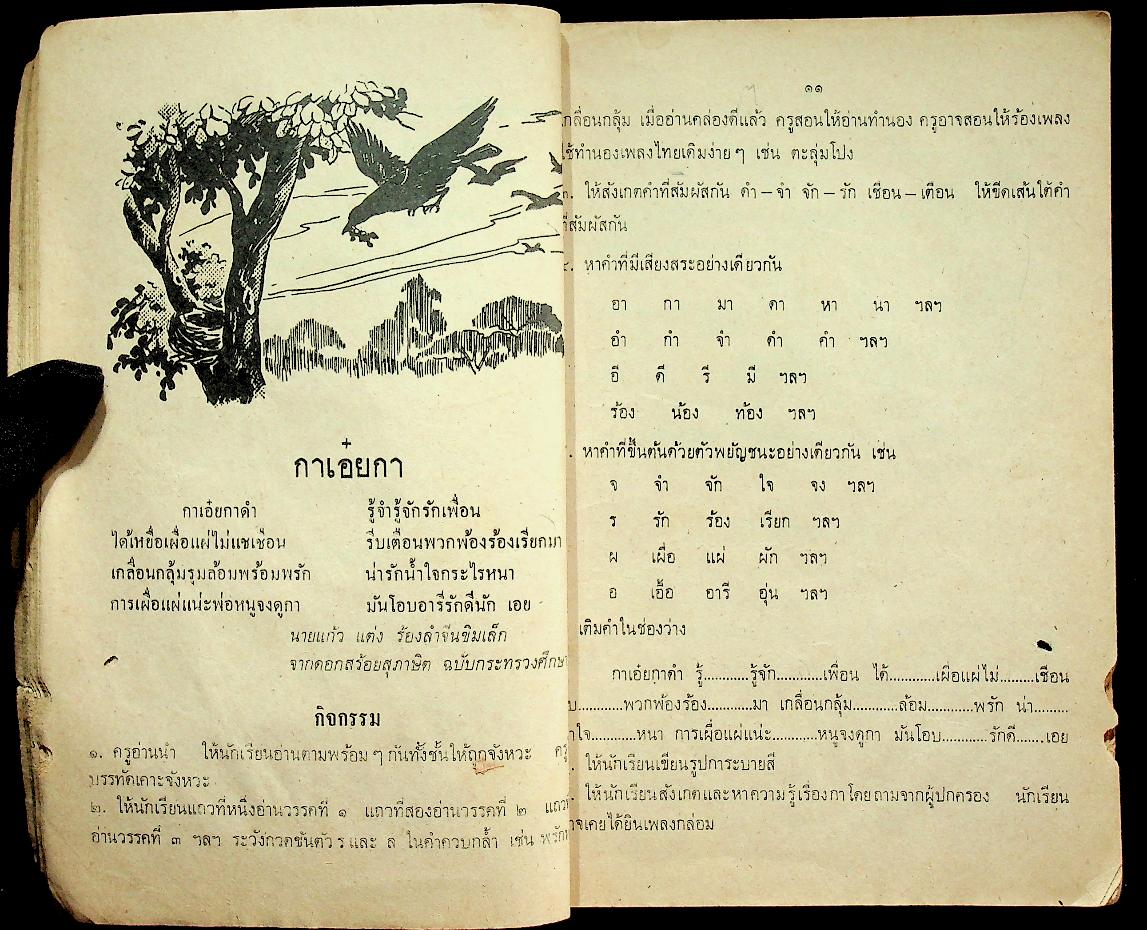 กาเอ๋ยกา
กาเอ๋ยกาดำ รู้จำรู้จักรักเพื่อน
ได้เหยื่อเผื่อแผ่ไม่แชเชือน รีบเตือนพวกพ้องร้องเรียกมา
เกลื่อนกลุ้มรุมล้อมพร้อมพรัก น่ารักน้ำใจกระไรหนา
การเผื่อแผ่แน่ะพ่อหนูจงดูกา มันโอบอารีรักดีนัก เอย
นายแก้ว แต่ง ร้องลำจีนขิมเล็ก
จากดอกสร้อยสุภาษิต ฉบับกระทรวงศึกษา
กิจกรรม
๑. ครูอ่านนำ ให้นักเรียนอ่านตามพร้อม ๆ กันทั้งชั้นให้ถูกจังหวะ ครู
บรรทัดเคาะจังหวะ
๒. ให้นักเรียนแถวที่หนึ่งอ่านวรรคที่ ๑ แถวที่สองอ่านวรรคที่ ๒ แถว
อ่านวรรคที่ ๓ ฯลฯ ระวังกวดขันตัว ร และ ล ในคำควบกล้ำ เช่น พรัก
๑๑
เกลื่อนกลุ้ม เมื่ออ่านคล่องดีแล้ว ครูสอนให้อ่านทำนอง ครูอาจสอนให้ร้องเพลง
ใช้ทำนองเพลงไทยเดิมง่าย ๆ เช่น ตะลุ่มโปง
๓. ให้สังเกตคำที่สัมผัสกัน ดำ – จำ จัก – รัก เชือน – เตือน ให้ขีดเส้นใต้คำ
ที่สัมผัสกัน
๔. หาคำที่มีเสียงสระอย่างเดียวกัน
อา กา มา ตา หา นา ฯลฯ
อำ กำ จำ ดำ คำ ฯลฯ
อี ดี รี มี ฯลฯ
ร้อง น้อง ท้อง ฯลฯ
. หาคำที่ขึ้นต้นด้วยตัวพยัญชนะอย่างเดียวกัน เช่น
จ จำ จัก ใจ จง ฯลฯ
ร รัก ร้อง เรียก ฯลฯ
ผ เผื่อ แผ่ ผัก ฯลฯ
อ เอื้อ อารี อุ่น ฯลฯ
เติมคำในช่องว่าง
กาเอ๋ยกาดำ รู้...........รู้จัก...........เพื่อน ได้...........เผื่อแผ่ไม่.........เชือน
...........พวกพ้องร้อง...........มา เกลื่อนกลุ้ม...........ล้อม...........พรัก น่า.........
ใจ...........หนา การเผื่อแผ่แน่ะ...........หนูจงดูกา มันโอบ...........รักดี.......เอย
. ให้นักเรียนเขียนรูปการะบายสี
ให้นักเรียนสังเกตและหาความรู้เรื่องกาโดยถามจากผู้ปกครอง นักเรียน
อาจเคยได้ยินเพลงกล่อม